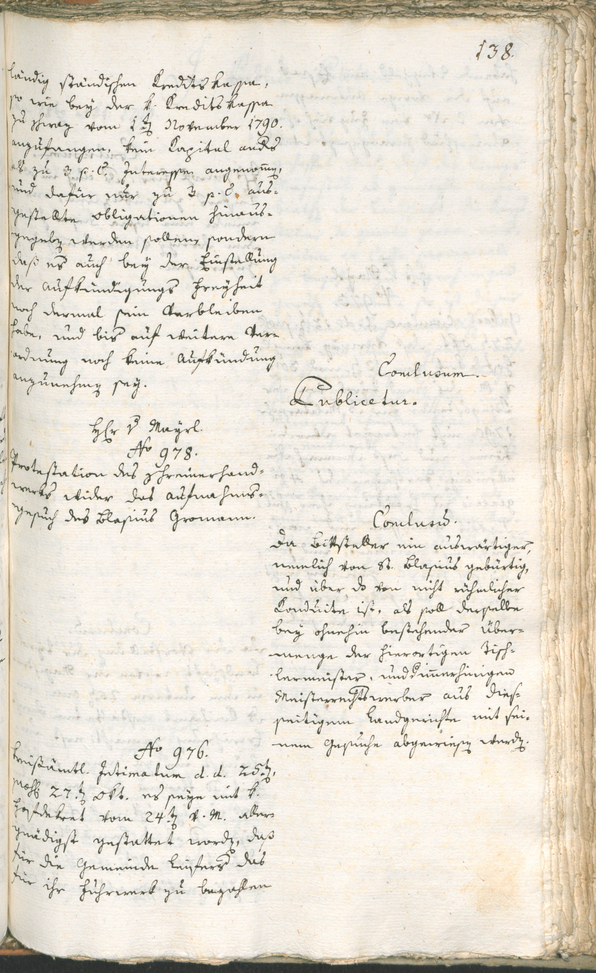 138.
ländig ständischen Kreditskassa,
so wie bey der k. Kreditskassa
zu Schwaz vom 1ten November 1790.
anzufangen, kein Kapital anders
als zu 3 p. C. Interessen angenommen,
und dafür nur zu 3 p. C. aus-
gestellte Obligationen hinaus-
gegeben werden sollen, sondern
daß es auch bey der Einstellung
der Aufkündigungs Freyheit
noch dermal sein Verbleiben
habe, und bis auf weitere Ver-
ordnung noch keine Aufkündung
anzunehmen sey.
Conclusum.
Publicetur.
Hr. v. Mayrl.
No 978.
Protestation des Schreinerhand-
werks wider das Aufnahms-
gesuch des Blasius Gromann.
Conclusum.
Da Bittsteller ein auswärtiger,
nemlich von St. Blasius gebürtig,
und über das von nicht rühmlicher
Konduite ist, als soll derselbe
bey ohnehin bestehender Über-
menge der hierortigen Tisch-
lermeister, und
Meisterrechtswerber aus dies-
seitigem Landgerichte mit sei-
nem Gesuche abgewiesen werden.
No 976.
Kreisämtl. Intimatum d. d. 25ten,
27ten Okt. es seye mit h.
Hofdekret vom 24ten v. M. aller-
gnädigst gestattet worden, daß
für die Gemeinde Leifers das
für ihr Fuhrwerk zu bezahlen